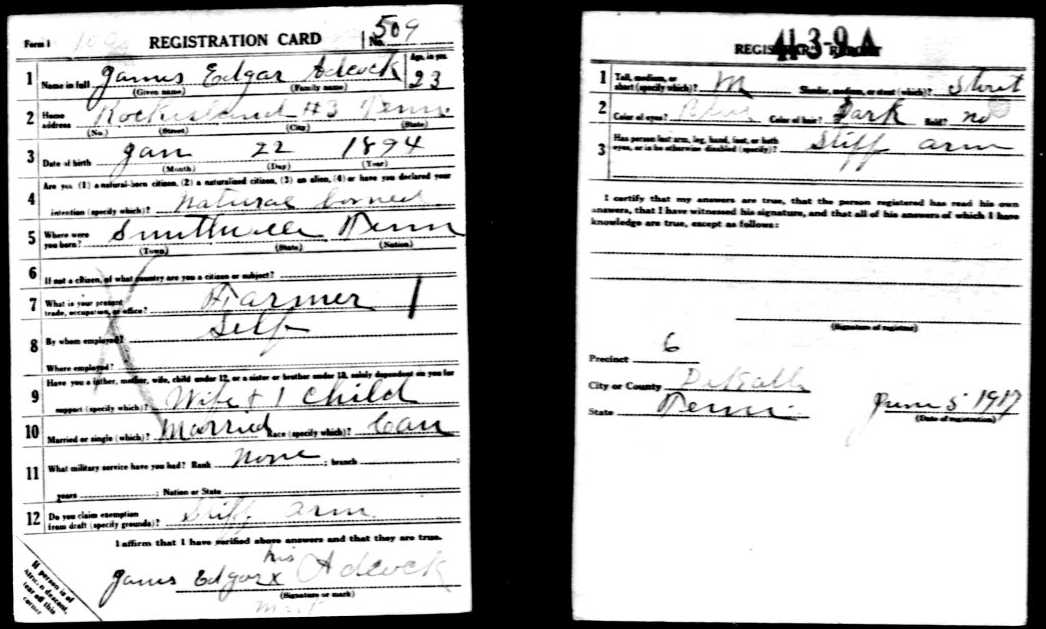 Form 1 REGISTRATION CARD No. 509
1 Name in full James Edgar Adcock Age, in yrs. 23
(Given name) (Family name)
2 Home address Rockisland #3 Tenn
(No.) (Street) (City) (State)
3 Date of birth Jan 22 1894
(Month) (Day) (Year)
Are you (1) a natural-born citizen, (2) a naturalized citizen, (3) an alien, (4) or have you declared your
4 intention (specify which)? Natural borned
5 Where were you born? Smithville Tenn
(Town) (State) (Nation)
6 If not a citizen, of what country are you a citizen or subject?
7 What is your present trade, occupation, or office? Farmer 1
8 By whom employed? Self
Where employed?
Have you a father, mother, wife, child under 12, or a sister or brother under 12, solely dependent on you for
9 support (specify which)? Wife + 1 child
10 Married or single (which)? Married Race (specify which)? Cau
11 What military service have you had? Rank None ; branch ;
years ; Nation or State
12 Do you claim exemption from draft (specify grounds)? Stiff arm
I affirm that I have verified above answers and that they are true.
his
James Edgar x Adcock
(Signature or mark)
mark
If person is of
African descent,
tear off this
corner
41-3-9 A
REGISTRAR'S REPORT
1 Tall, medium, or short (specify which)? M Slender, medium, or stout (which)? Stout
2 Color of eyes? Blue Color of hair? Dark Bald? no
3 Has person lost arm, leg, hand, foot, or both eyes, or is he otherwise disabled (specify)? Stiff arm
I certify that my answers are true, that the person registered has read his own
answers, that I have witnessed his signature, and that all of his answers of which I have
knowledge are true, except as follows:
(Signature of registrar)
Precinct 6
City or County DeKalb
State Tenn. June 5 1917
(Date of registration)